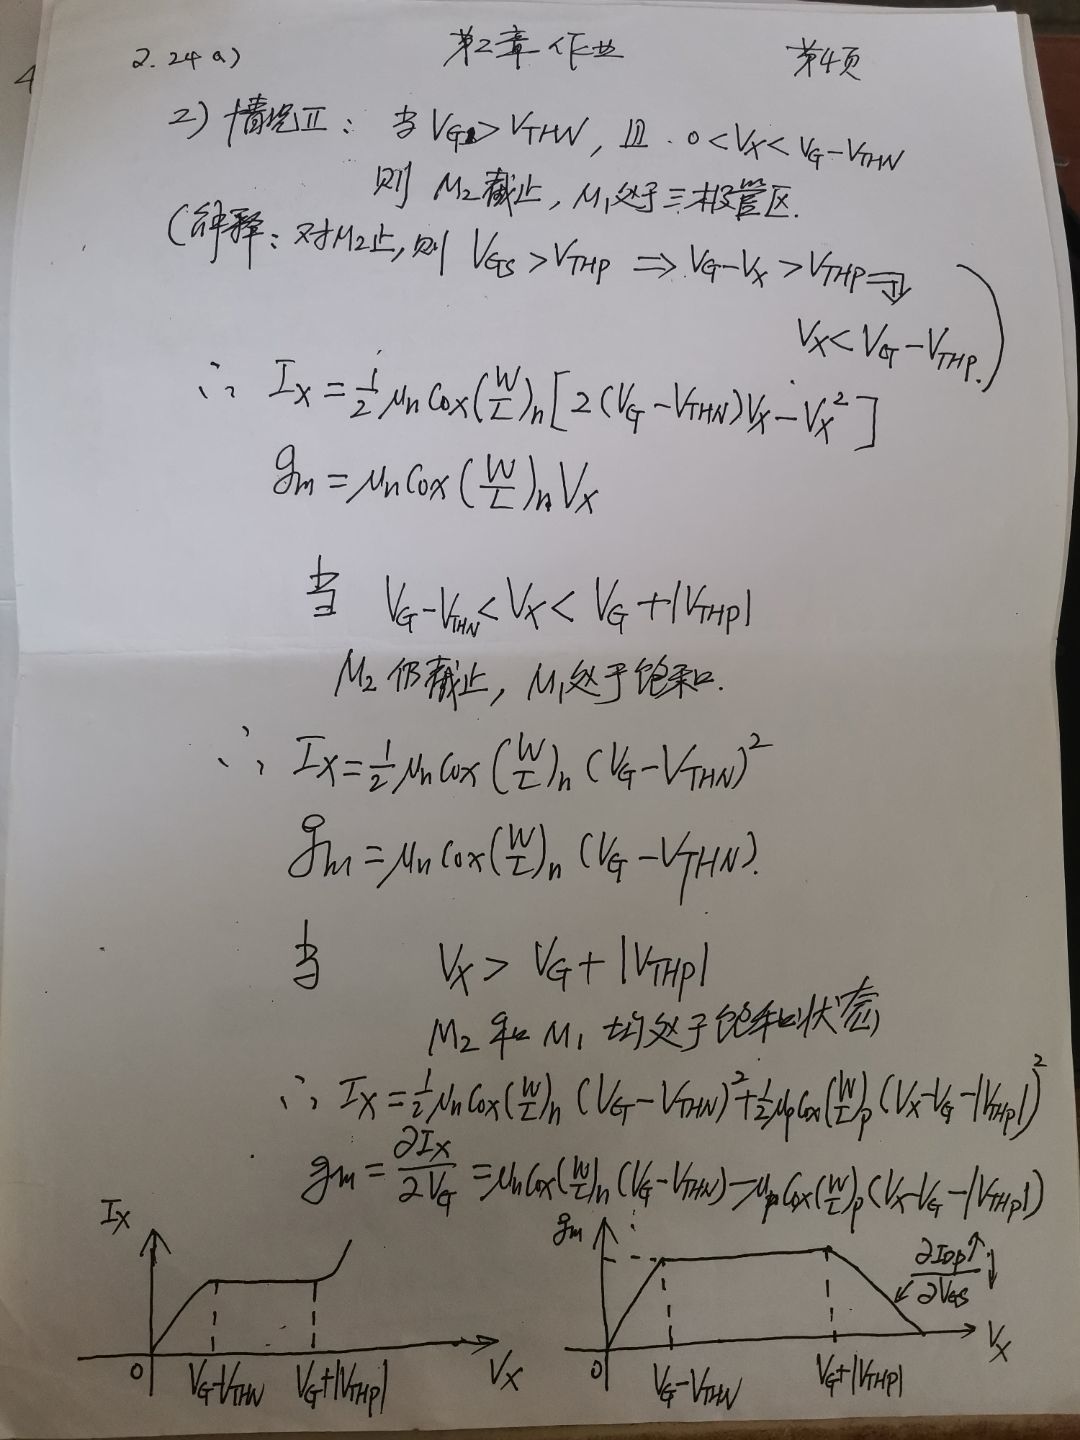 2.24 a) 第2章作业 第4页
2) 情况Ⅱ: 当 VG>VTHN, 且 0<VX<VG-VTHN
则 M2截止, M1处于三极管区.
(解释: 对M2止, 则 VGS>VTHP ⇒ VG-VX>VTHP ⇒
VX<VG-VTHP.)
∴ IX=1/2 μnCox(W/L)n[2(VG-VTHN)VX-VX²]
gm=μnCox(W/L)nVX
当 VG-VTHN<VX<VG+|VTHP|
M2仍截止, M1处于饱和.
∴ IX=1/2 μnCox(W/L)n(VG-VTHN)²
gm=μnCox(W/L)n(VG-VTHN).
当 VX>VG+|VTHP|
M2和M1均处于饱和状态
∴ IX=1/2 μnCox(W/L)n(VG-VTHN)²+1/2 μpCox(W/L)p(VX-VG-|VTHP|)²
gm=∂IX/∂VG=μnCox(W/L)n(VG-VTHN)-μpCox(W/L)p(VX-VG-|VTHP|)
IX
0 VG-VTHN VG+|VTHP| VX
gm
∂IDP/∂VGS ↑↓
0 VG-VTHN VG+|VTHP| VX